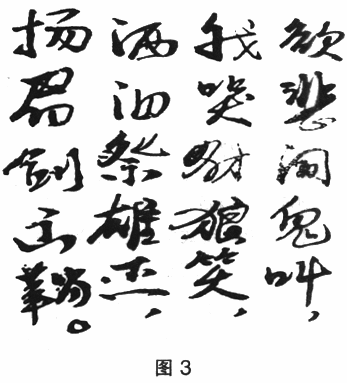 欲悲闻鬼叫，
我哭豺狼笑，
洒泪祭雄杰，
扬眉剑出鞘。
图 3